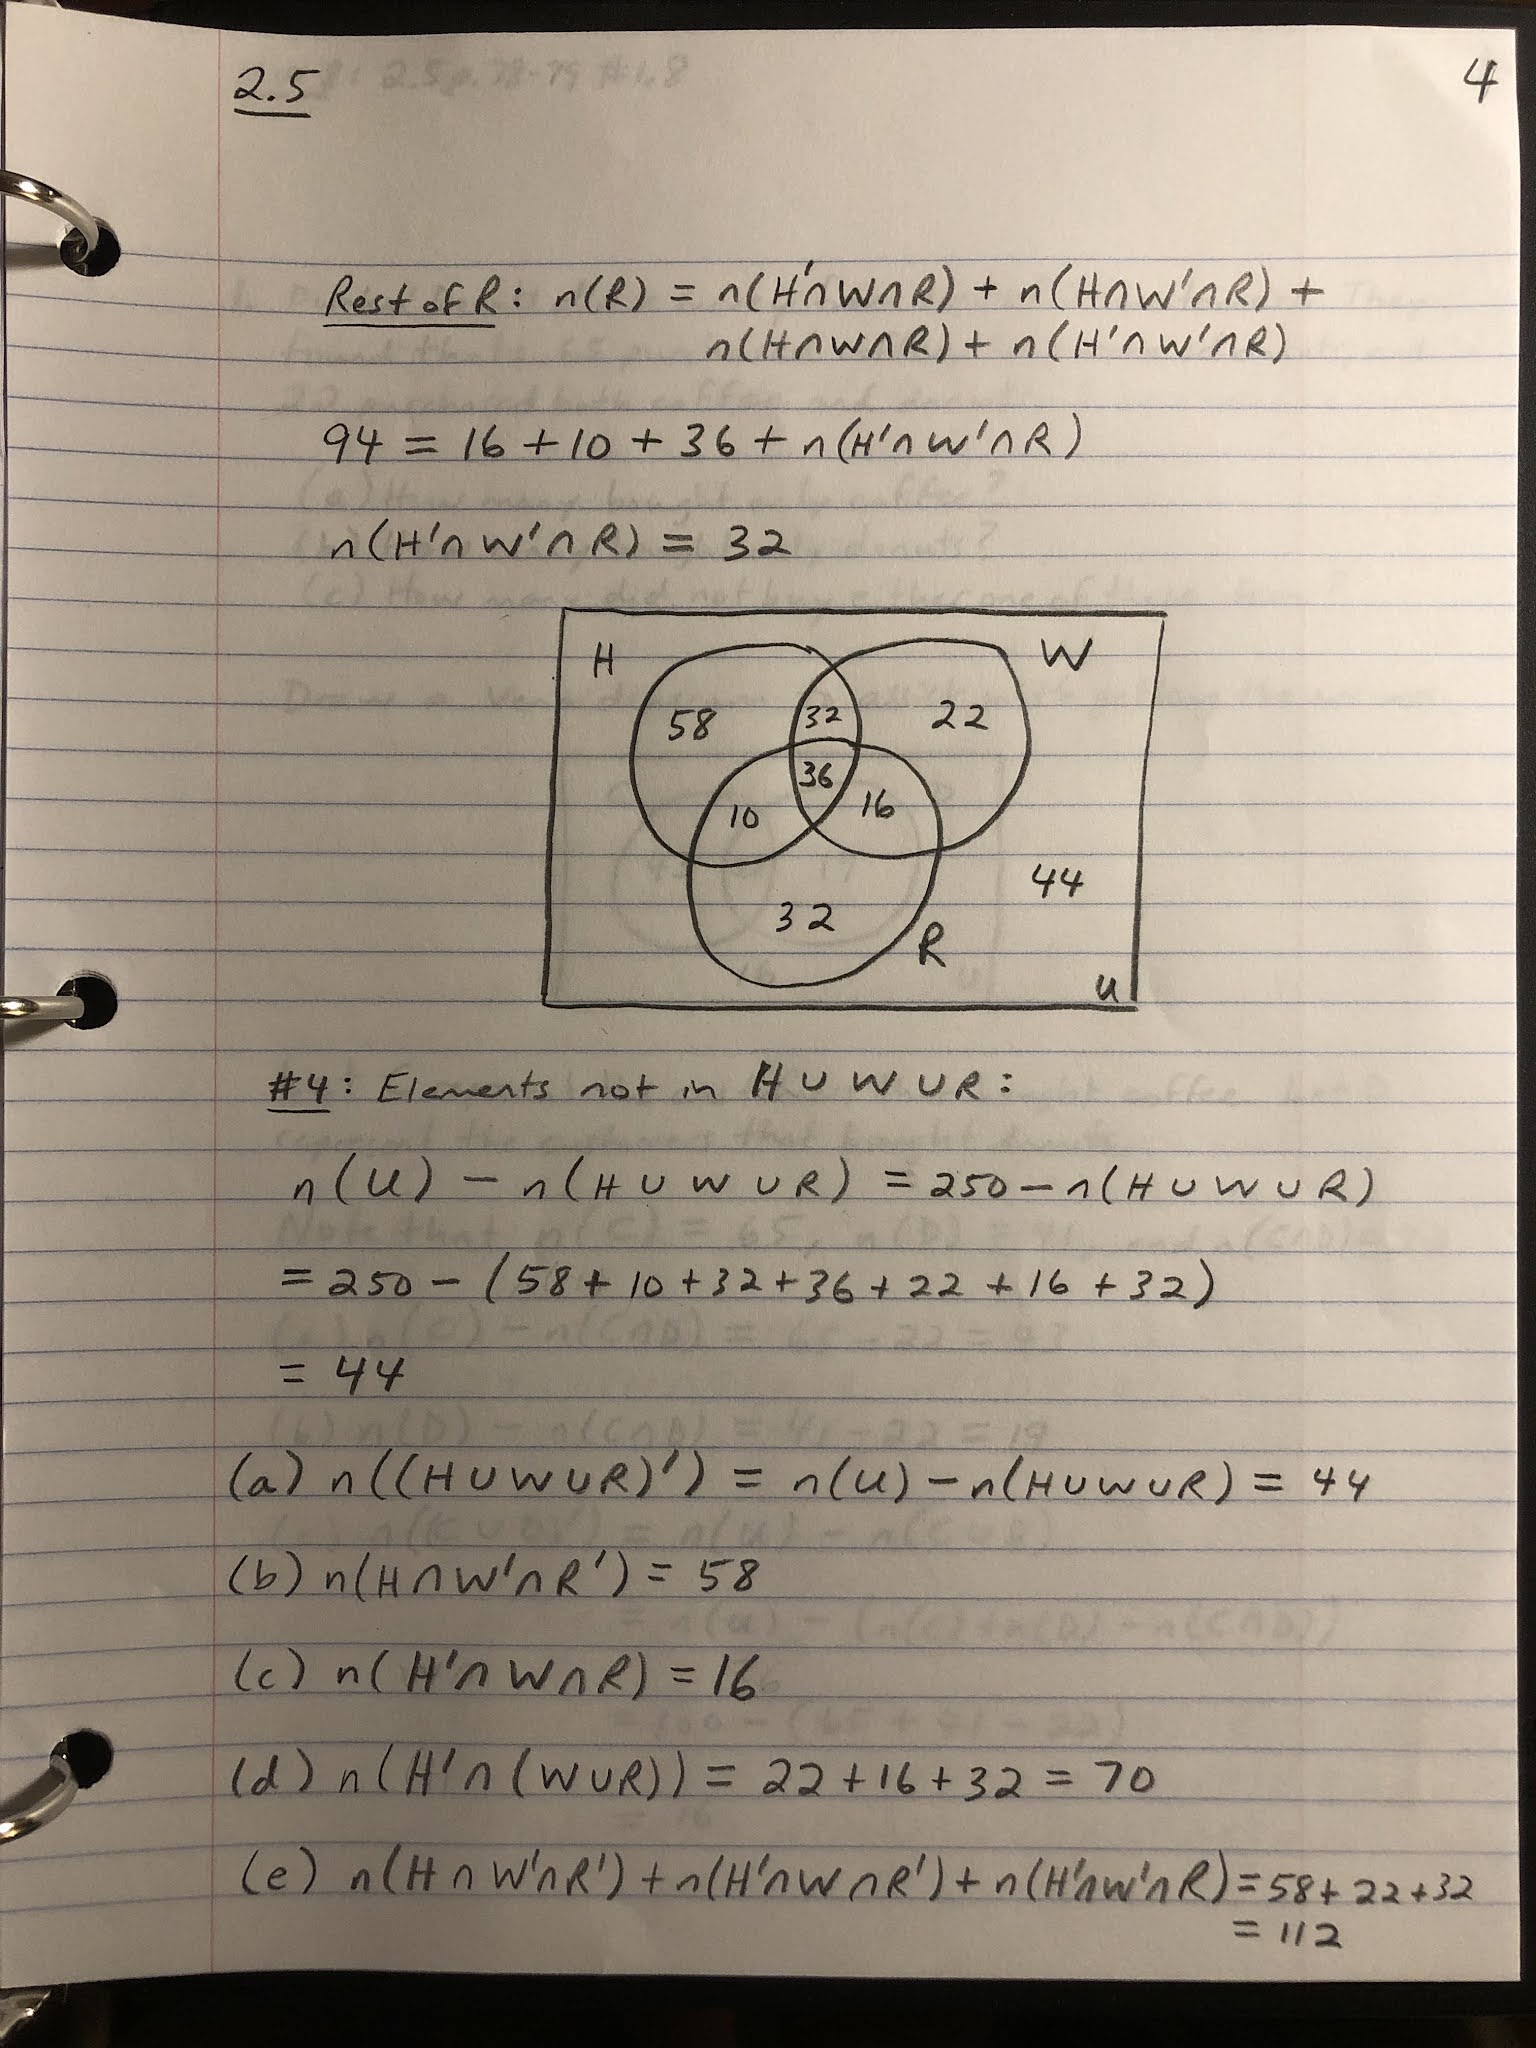 2.5
4
Rest of R: n(R) = n(H'∩W∩R) + n(H∩W'∩R) +
n(H∩W∩R) + n(H'∩W'∩R)
94 = 16 + 10 + 36 + n(H'∩W'∩R)
n(H'∩W'∩R) = 32
H
W
58
32
22
36
10
16
44
32
R
U
#4: Elements not in H∪W∪R:
n(U) − n(H∪W∪R) = 250 − n(H∪W∪R)
= 250 − (58 + 10 + 32 + 36 + 22 + 16 + 32)
= 44
(a) n((H∪W∪R)') = n(U) − n(H∪W∪R) = 44
(b) n(H∩W'∩R') = 58
(c) n(H'∩W∩R) = 16
(d) n(H'∩(W∪R)) = 22 + 16 + 32 = 70
(e) n(H∩W'∩R') + n(H'∩W∩R') + n(H'∩W'∩R) = 58 + 22 + 32
= 112